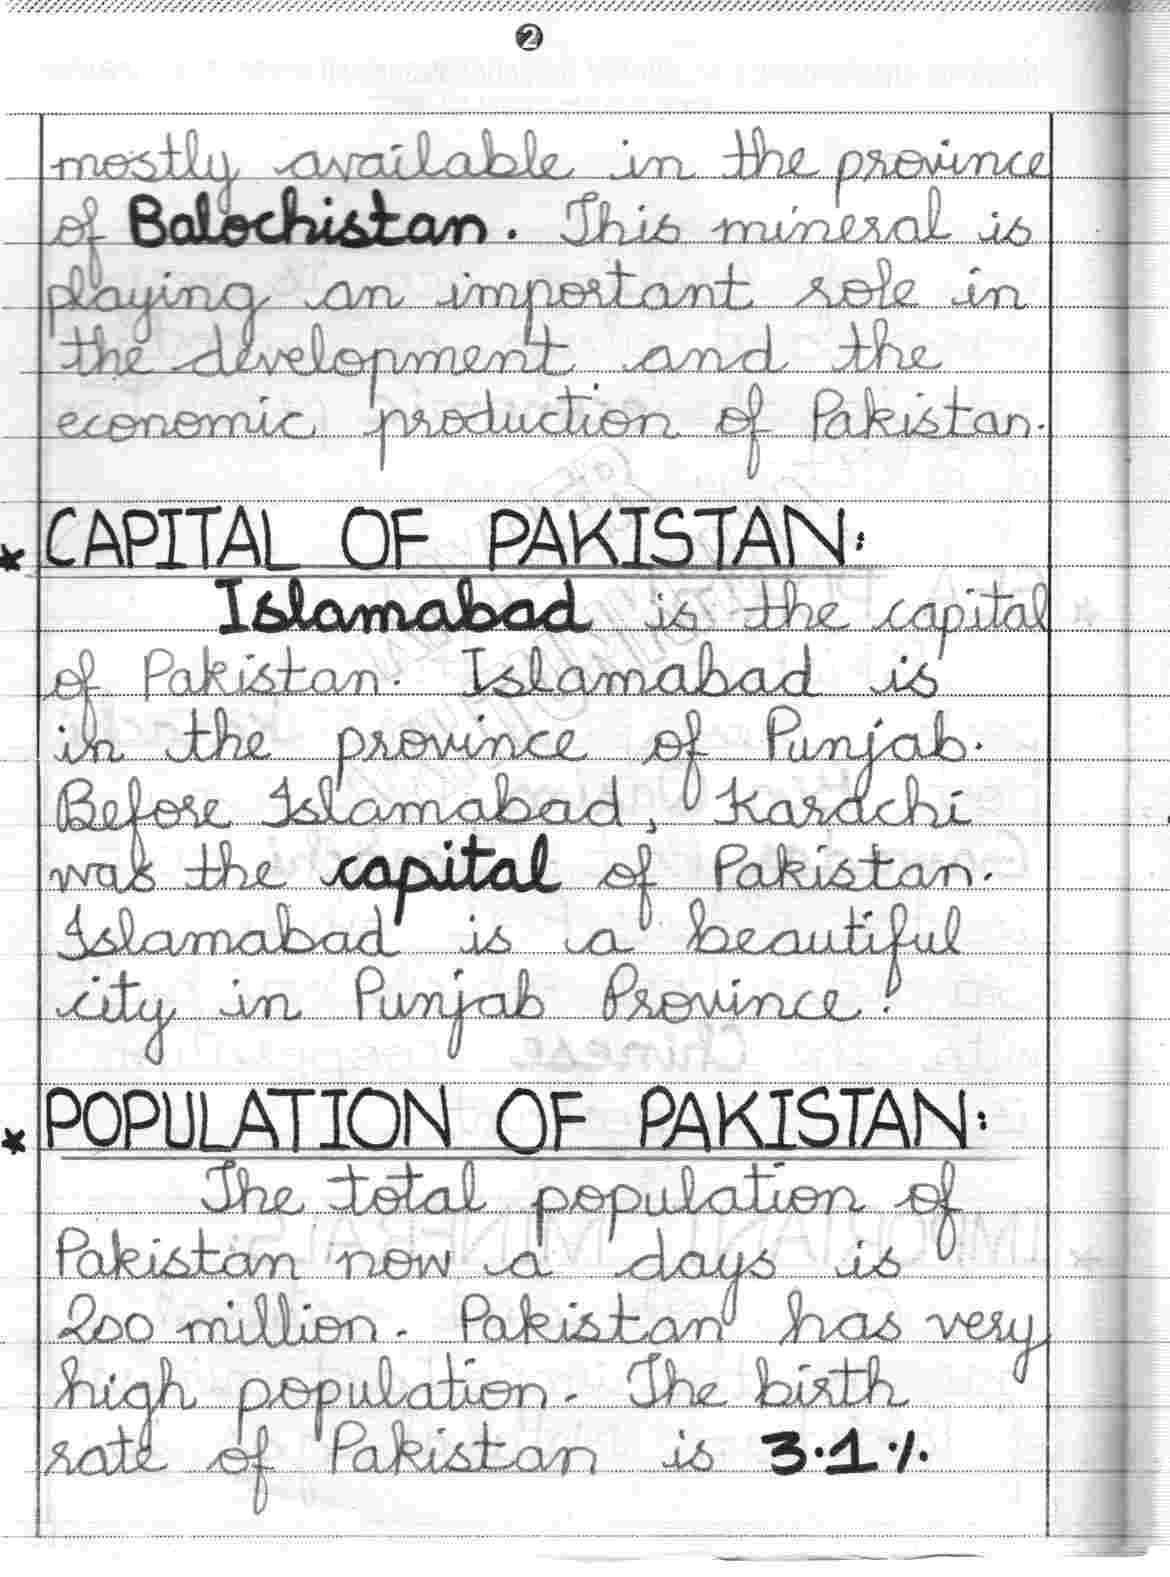 2
mostly available in the province
of Balochistan. This mineral is
playing an important role in
the development and the
economic production of Pakistan.
* CAPITAL OF PAKISTAN:
Islamabad is the capital
of Pakistan. Islamabad is
in the province of Punjab.
Before Islamabad, Karachi
was the capital of Pakistan.
Islamabad is a beautiful
city in Punjab Province.
* POPULATION OF PAKISTAN:
The total population of
Pakistan now a days is
200 million. Pakistan has very
high population. The birth
rate of Pakistan is 3.1%.